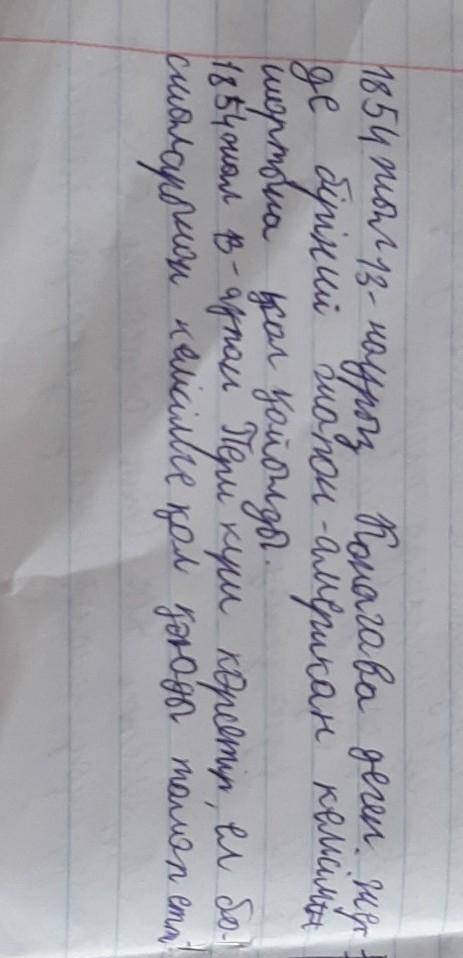 1854 жыл 13-наурыз Канагава деген жер-
де бірінші жапон-американ келісім
шартына қол қойылды.
1854 жыл 13-ақпан Пери күш көрсетіп, ел ба-
сшыларынан келісімге қол қоюды талап етті